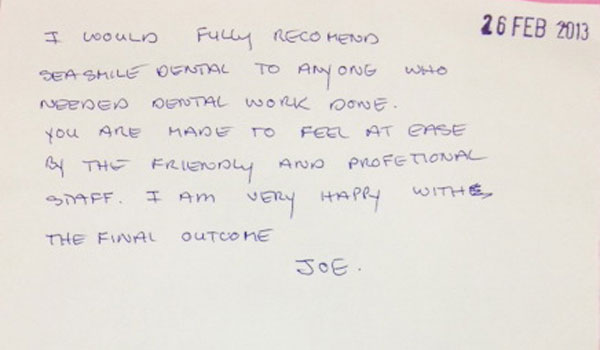 26 FEB 2013
I WOULD FULLY RECOMEND
SEASMILE DENTAL TO ANYONE WHO
NEEDED DENTAL WORK DONE.
YOU ARE MADE TO FEEL AT EASE
BY THE FRIENDLY AND PROFETIONAL
STAFF. I AM VERY HAPPY WITH
THE FINAL OUTCOME
JOE.